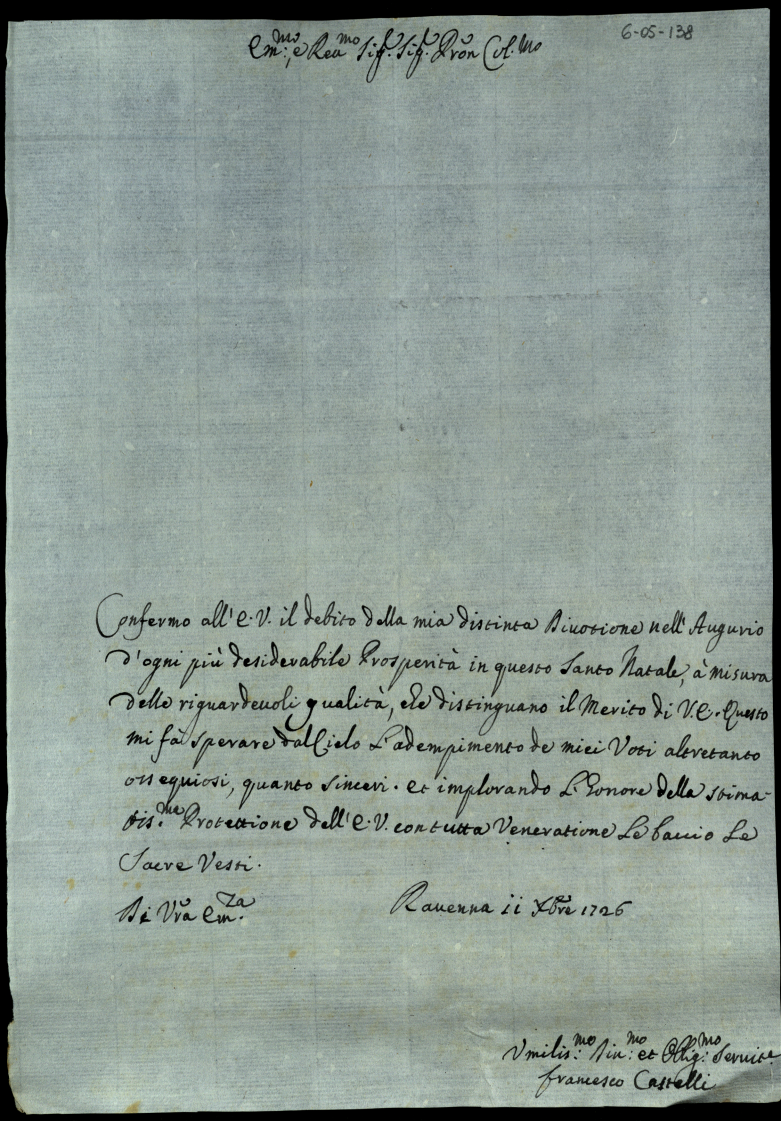 6-05-138
Em:mo, e Reumo Sigr. Sigr. Pron Col.mo
Confermo all'E.V. il debito della mia distinta Diuotione nell'Augurio
d'ogni più desiderabile Prosperità in questo Santo Natale, à misura
delle riguardeuoli qualità, che distinguano il Merito di V.E. Questo
mi fà sperare dal Cielo L'adempimento de miei Voti altretanto
ossequiosi, quanto sinceri. et implorando L'Honore della stima-
tis.ma Protettione dell'E.V. con tutta Veneratione Le baccio Le
Sacre Vesti.
Di Vra Em.za Ravenna 11 Xbre 1726
Vmilis:mo Diu:mo et Oblig:mo Seruite
Francesco Castelli